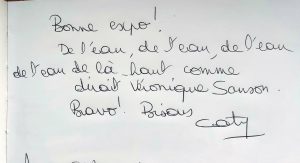 Bonne expo!
De l'eau, de l'eau, de l'eau
de l'eau de là-haut comme
dirait Véronique Sanson.
Bravo! Bisous
Caty